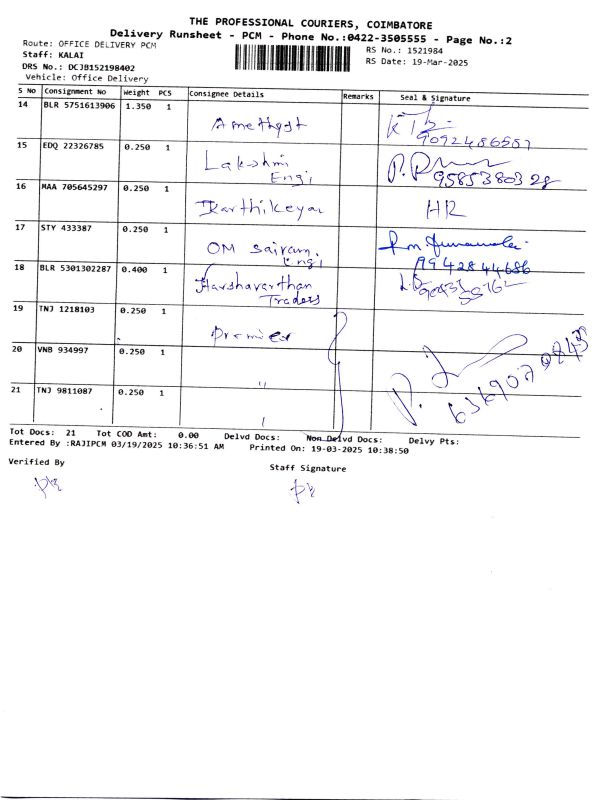 THE PROFESSIONAL COURIERS, COIMBATORE
Delivery Runsheet - PCM - Phone No.:0422-3505555 - Page No.:2
Route: OFFICE DELIVERY PCM
RS No.: 1521984
Staff: KALAI
RS Date: 19-Mar-2025
DRS No.: DCJB152198402
Vehicle: Office Delivery
S No Consignment No Weight PCS Consignee Details Remarks Seal & Signature
14 BLR 5751613906 1.350 1 Amethyst
9092486587
15 EDQ 22326785 0.250 1 Lakshmi
Engi 9585380328
16 MAA 705645297 0.250 1 Karthikeyan HR
17 STY 433387 0.250 1 OM Sairam
Engi 9942844686
18 BLR 5301302287 0.400 1 Harshavarthan
Traders
19 TNJ 1218103 0.250 1 Premier
20 VNB 934997 0.250 1 "
21 TNJ 9811087 0.250 1
Tot Docs: 21 Tot COD Amt: 0.00 Delvd Docs: Non Delvd Docs: Delvy Pts:
Entered By :RAJIPCM 03/19/2025 10:36:51 AM Printed On: 19-03-2025 10:38:50
Verified By
Staff Signature